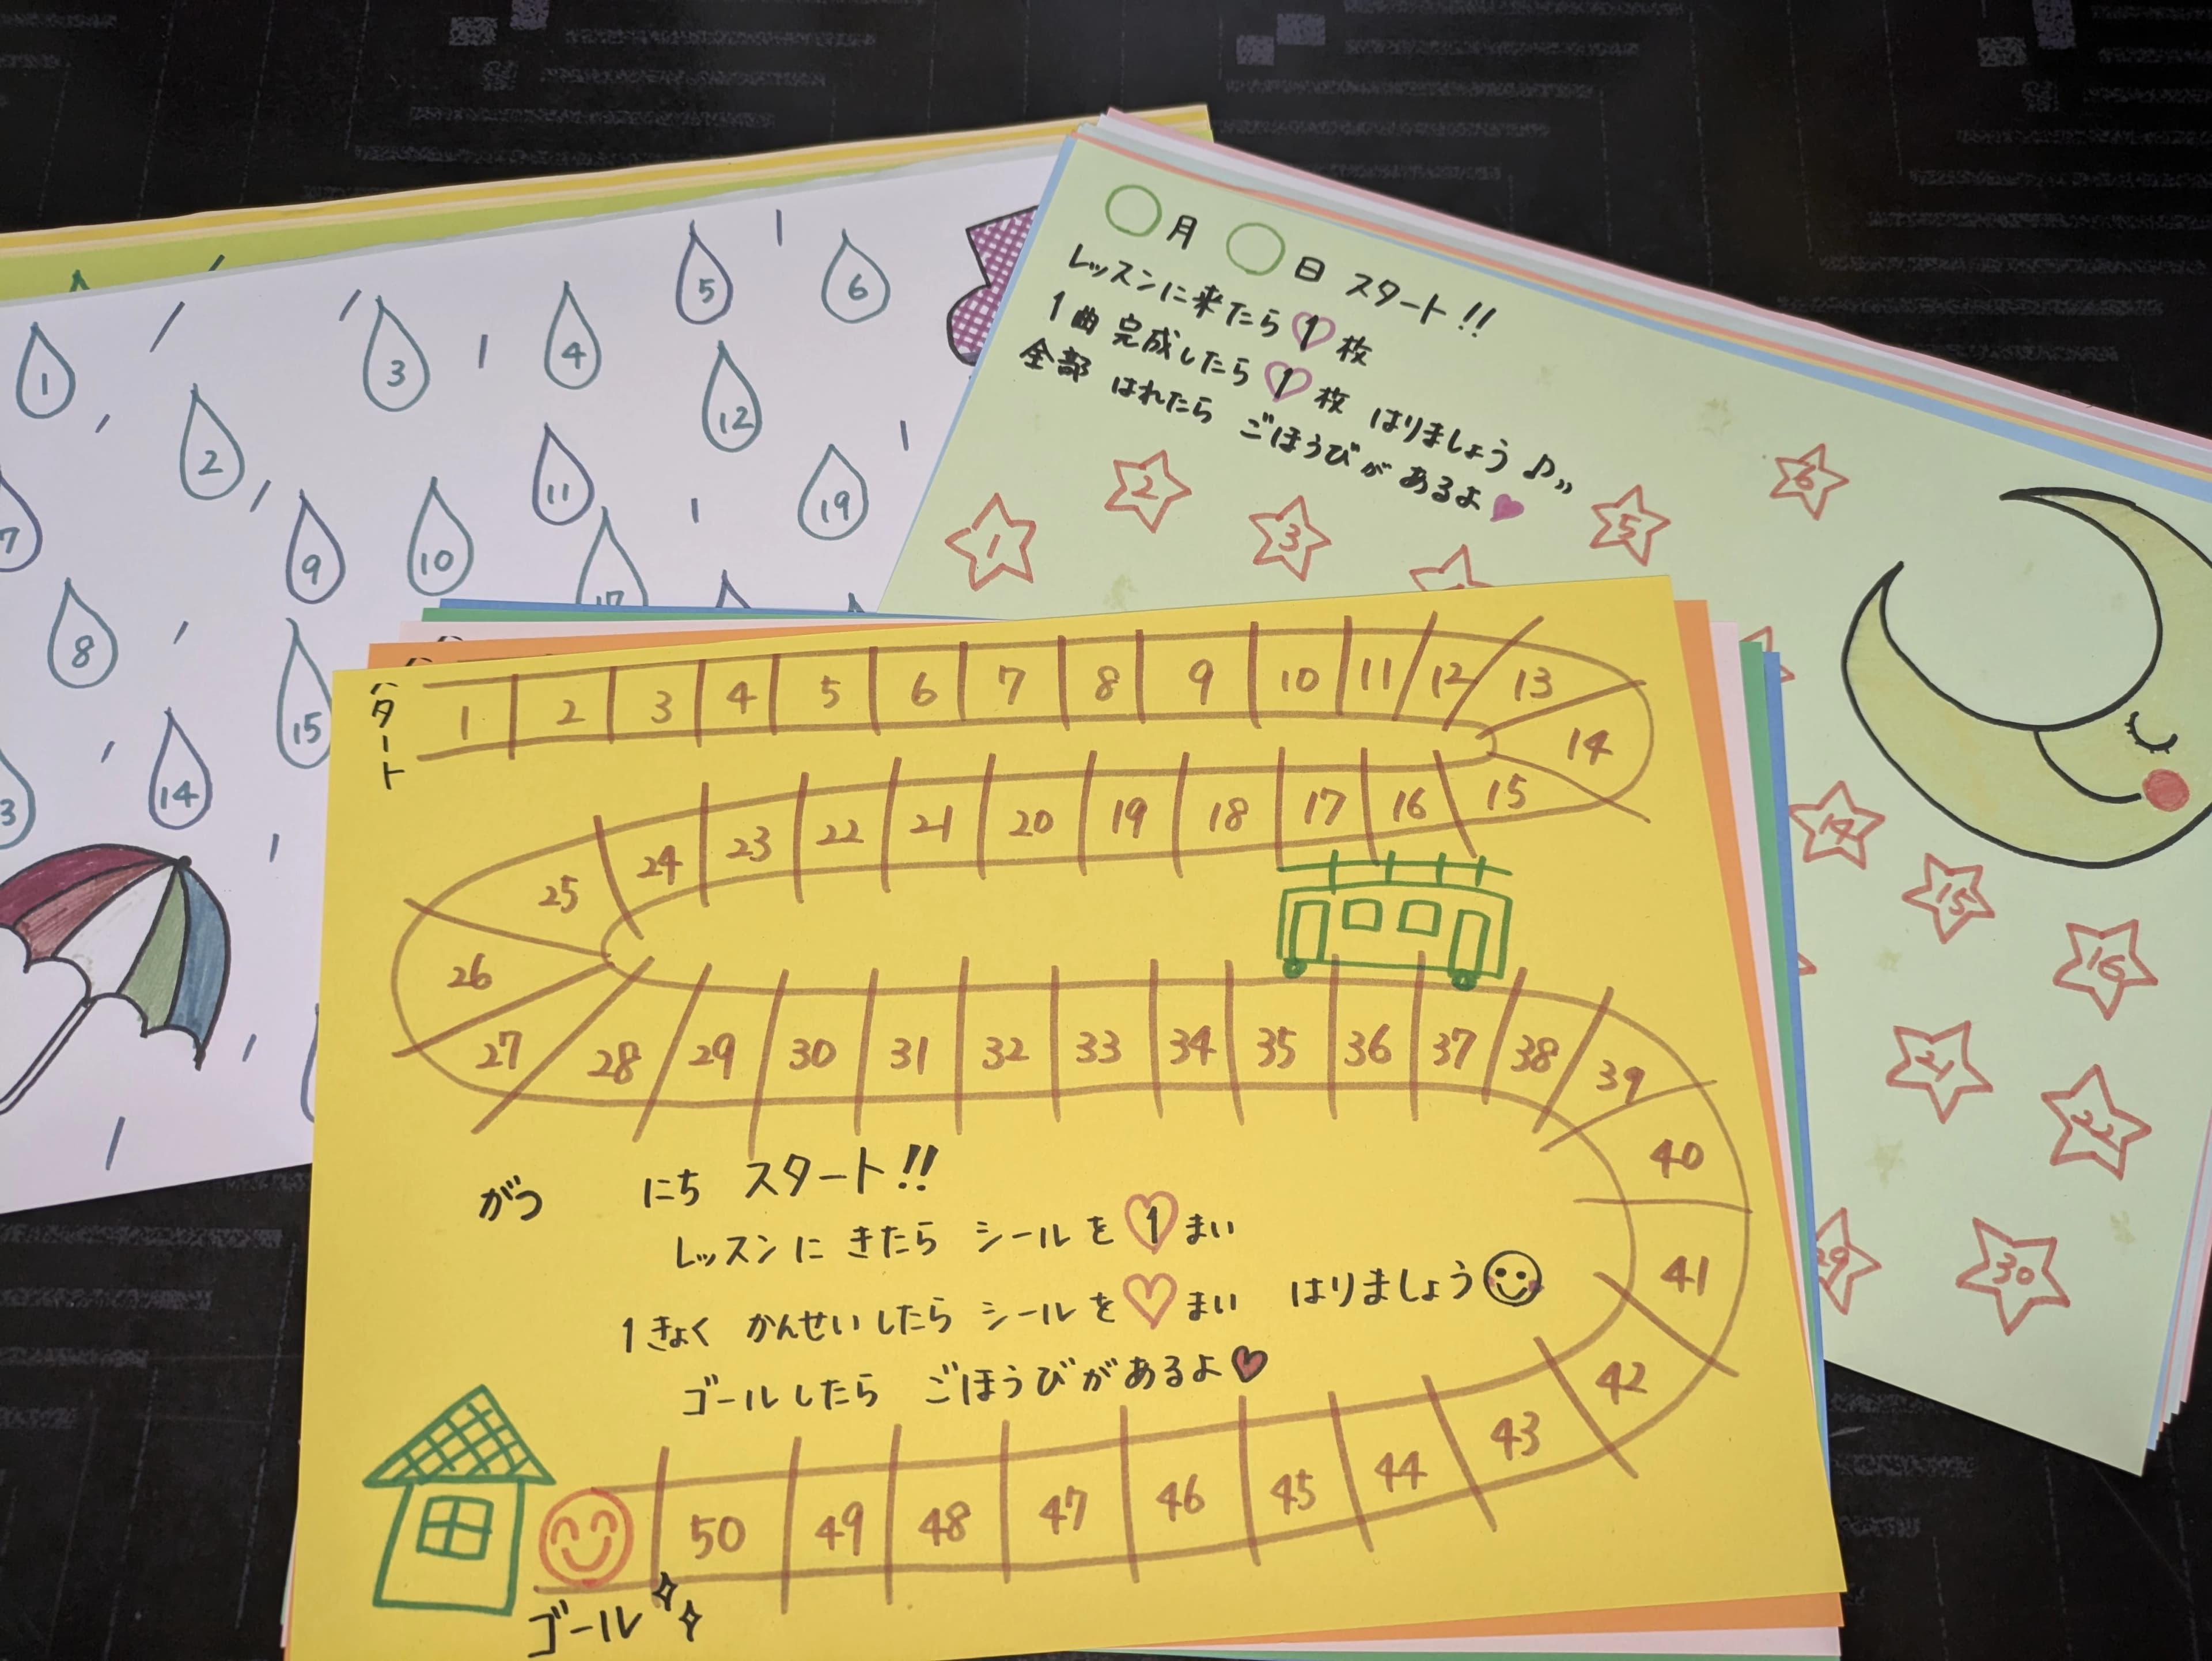 1
2
3
4
5
6
7
8
9
10
11
12
14
15
17
19
○月 ○日 スタート!!
レッスンに来たら 1 枚
1曲 完成したら 1 枚 はりましょう♪〃
全部 はれたら ごほうびが あるよ
1
2
3
5
6
14
15
16
21
22
29
30
タート
1 2 3 4 5 6 7 8 9 10 11 12 13
14
15
24 23 22 21 20 19 18 17 16
25
26
27 28 29 30 31 32 33 34 35 36 37 38 39
40
41
42
43
がつ にち スタート!!
レッスンに きたら シールを 1 まい
1きょく かんせいしたら シールを まい はりましょう
ゴールしたら ごほうびがあるよ
50 49 48 47 46 45 44
ゴール